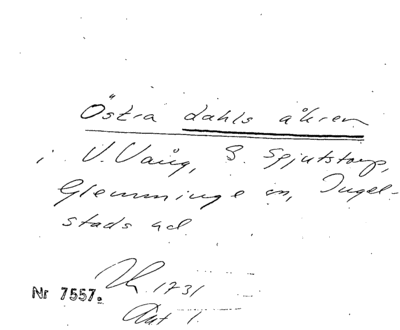 Östra dahls åkren
i V. Vång, S. Spjutstorp,
Glemminge sn, Ingel-
stads hd
1731
Nr 7557.
Akt 1.